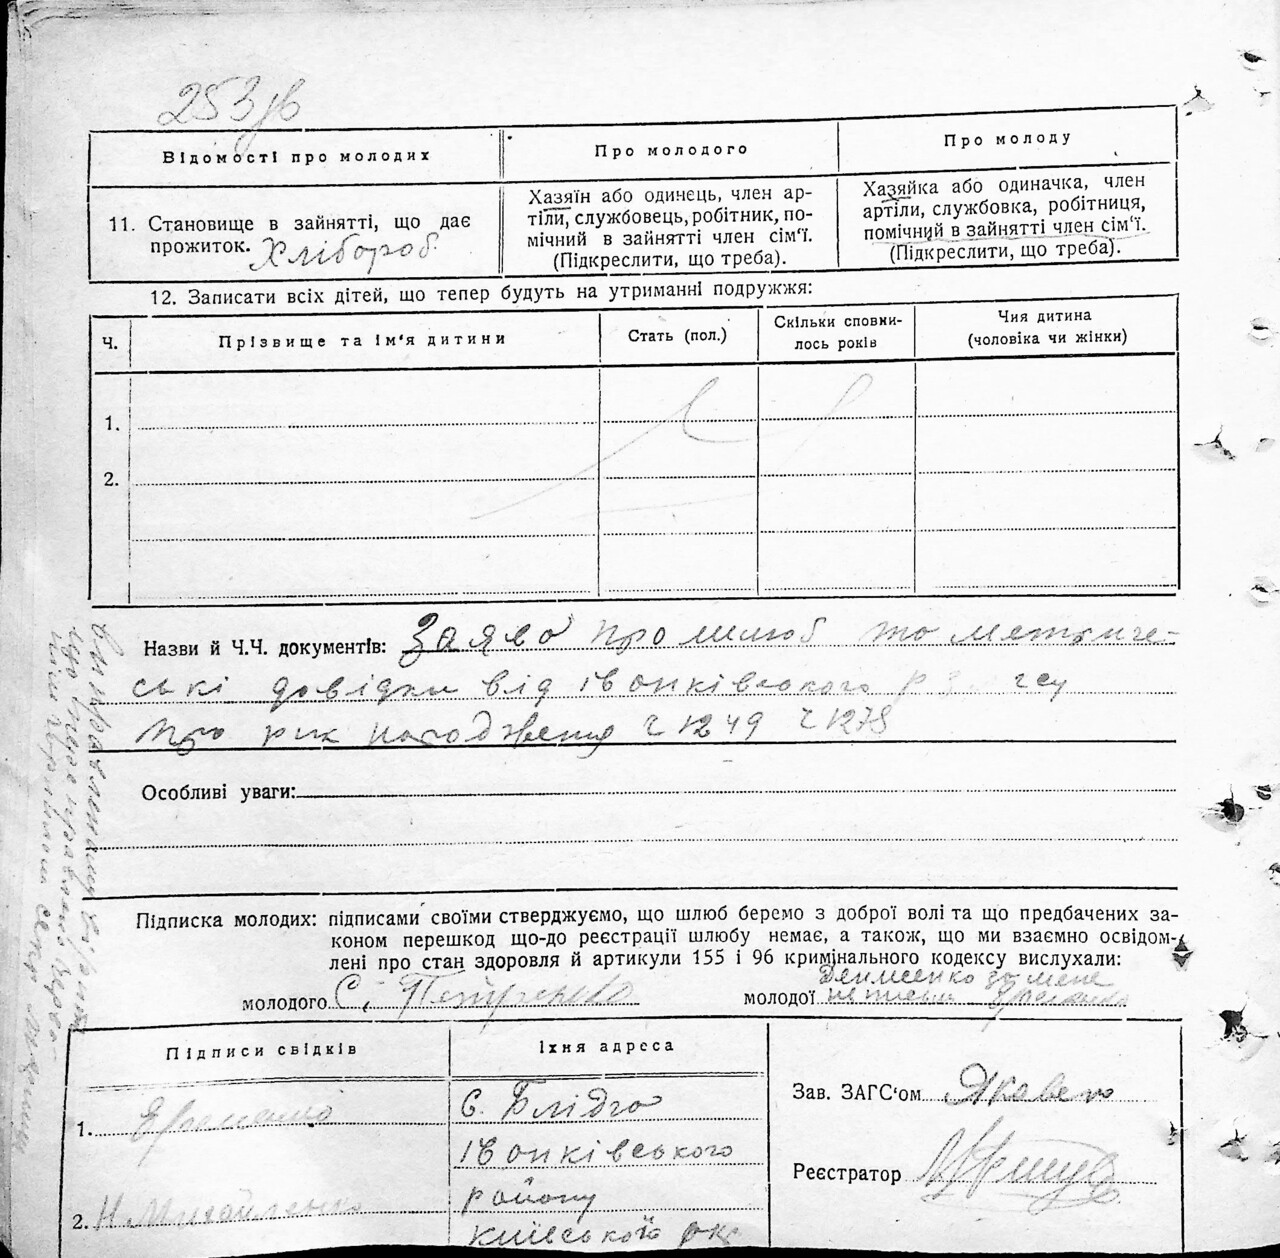 253зв
Відомості про молодих
Про молодого
Про молоду
11. Становище в зайнятті, що дає
прожиток. Хлібороб
Хазяїн або одинець, член ар-
тіли, службовець, робітник, по-
мічний в зайнятті член сім'ї.
(Підкреслити, що треба).
Хазяйка або одиначка, член
артіли, службовка, робітниця,
помічний в зайнятті член сім'ї.
(Підкреслити, що треба).
12. Записати всіх дітей, що тепер будуть на утриманні подружжя:
Ч.
Прізвище та ім'я дитини
Стать (пол.)
Скільки сповни-
лось років
Чия дитина
(чоловіка чи жінки)
1.
2.
Назви й Ч.Ч. документів: Заява про шлюб та метриче-
ські довідки від Іванківського
про рик народження ч 1249 ч 1278
Особливі уваги:
Підписка молодих: підписами своїми стверджуємо, що шлюб беремо з доброї волі та що предбачених за-
коном перешкод що-до реєстрації шлюбу немає, а також, що ми взаємно освідом-
лені про стан здоровля й артикули 155 і 96 кримінального кодексу вислухали:
молодого С. Петренко
молодої Денисенко за мене
неписьм
Підписи свідків
Їхня адреса
1.
с. Блідча
Іванківського
2. Н. Михайленко
району
Київської ок
Зав. ЗАГС'ом
Реєстратор